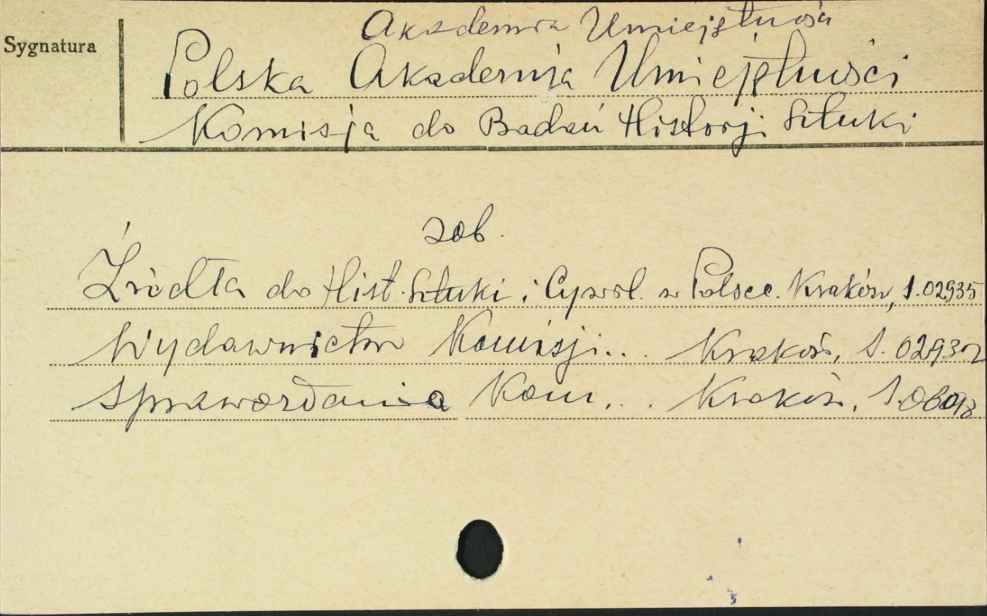 Akademia Umiejętności
Sygnatura
Polska Akademia Umiejętności
Komisja do Badań Historji Sztuki
zob.
Źródła do Hist. Sztuki i Cywil. w Polsce. Kraków, S.02935
Wydawnictwo Komisji... Kraków, S. 02932
Sprawozdania Kom... Kraków, S.06018